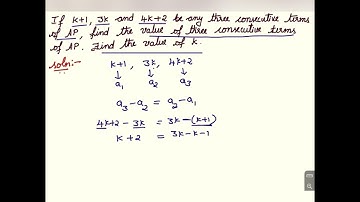 If k+1, 3k and 4k+2 be any three consecutive terms
of AP, find the value of three consecutive terms
of AP. Find the value of k.
Soln:-
k+1 , 3k , 4k+2
↓ ↓ ↓
a₁ a₂ a₃
a₃-a₂ = a₂-a₁
4k+2 - 3k = 3k-(k+1)
k+2 = 3k-k-1